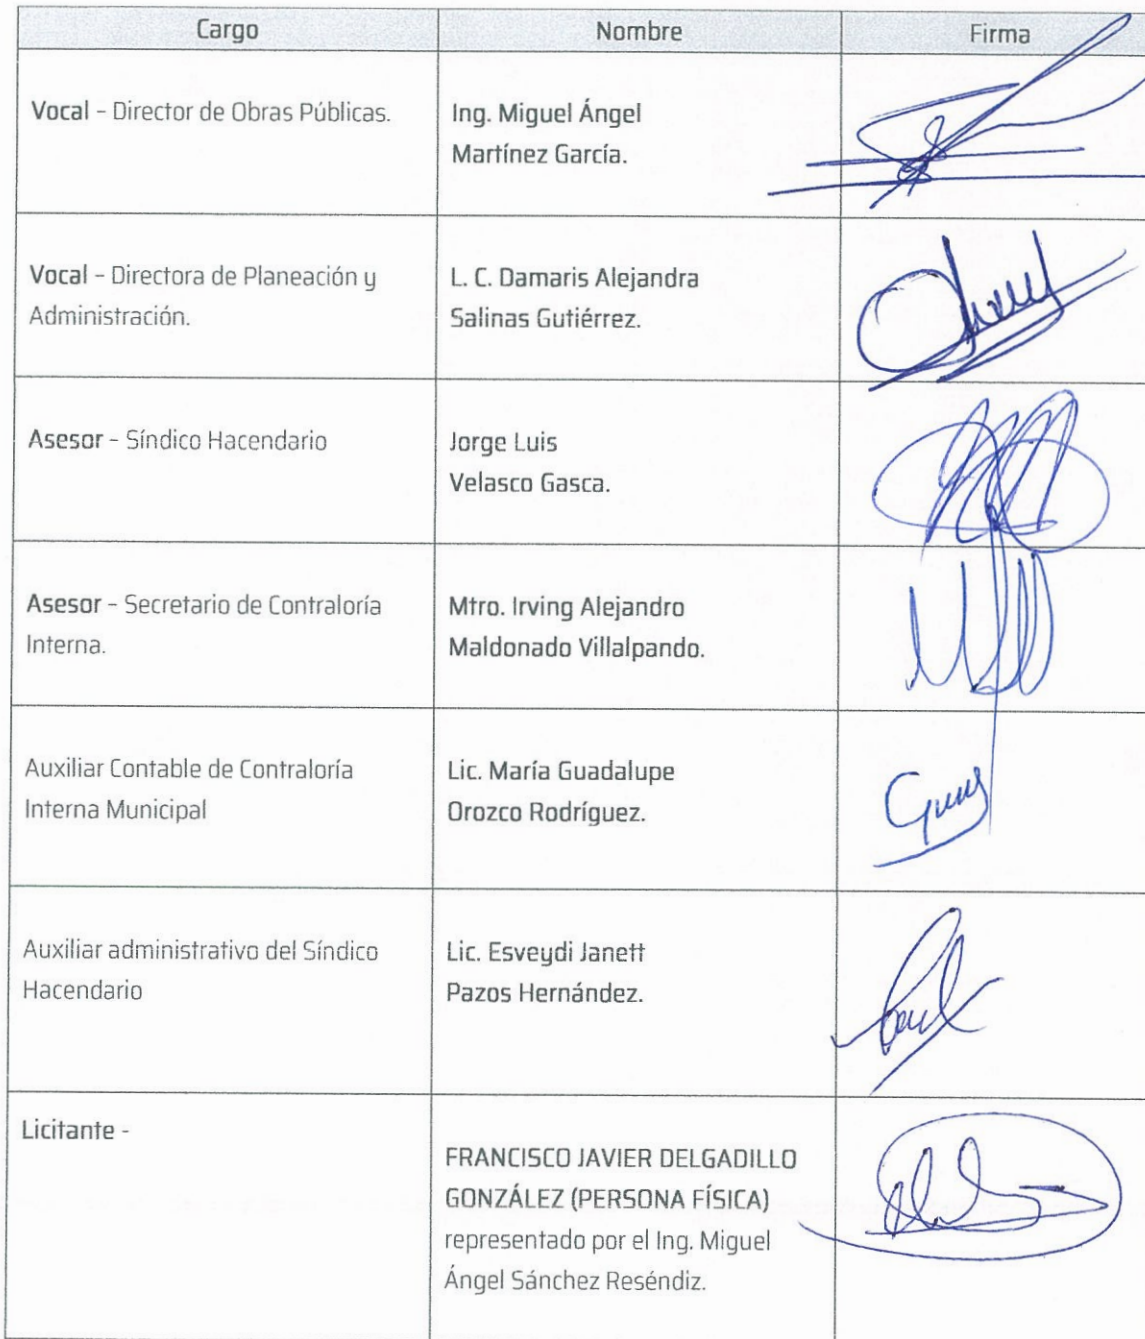 Cargo Nombre Firma
Vocal – Director de Obras Públicas.
Ing. Miguel Ángel
Martínez García.
Vocal – Directora de Planeación y
Administración.
L. C. Damaris Alejandra
Salinas Gutiérrez.
Asesor – Síndico Hacendario
Jorge Luis
Velasco Gasca.
Asesor – Secretario de Contraloría
Interna.
Mtro. Irving Alejandro
Maldonado Villalpando.
Auxiliar Contable de Contraloría
Interna Municipal
Lic. María Guadalupe
Orozco Rodríguez.
Auxiliar administrativo del Síndico
Hacendario
Lic. Esveydi Janett
Pazos Hernández.
Licitante -
FRANCISCO JAVIER DELGADILLO
GONZÁLEZ (PERSONA FÍSICA)
representado por el Ing. Miguel
Ángel Sánchez Reséndiz.